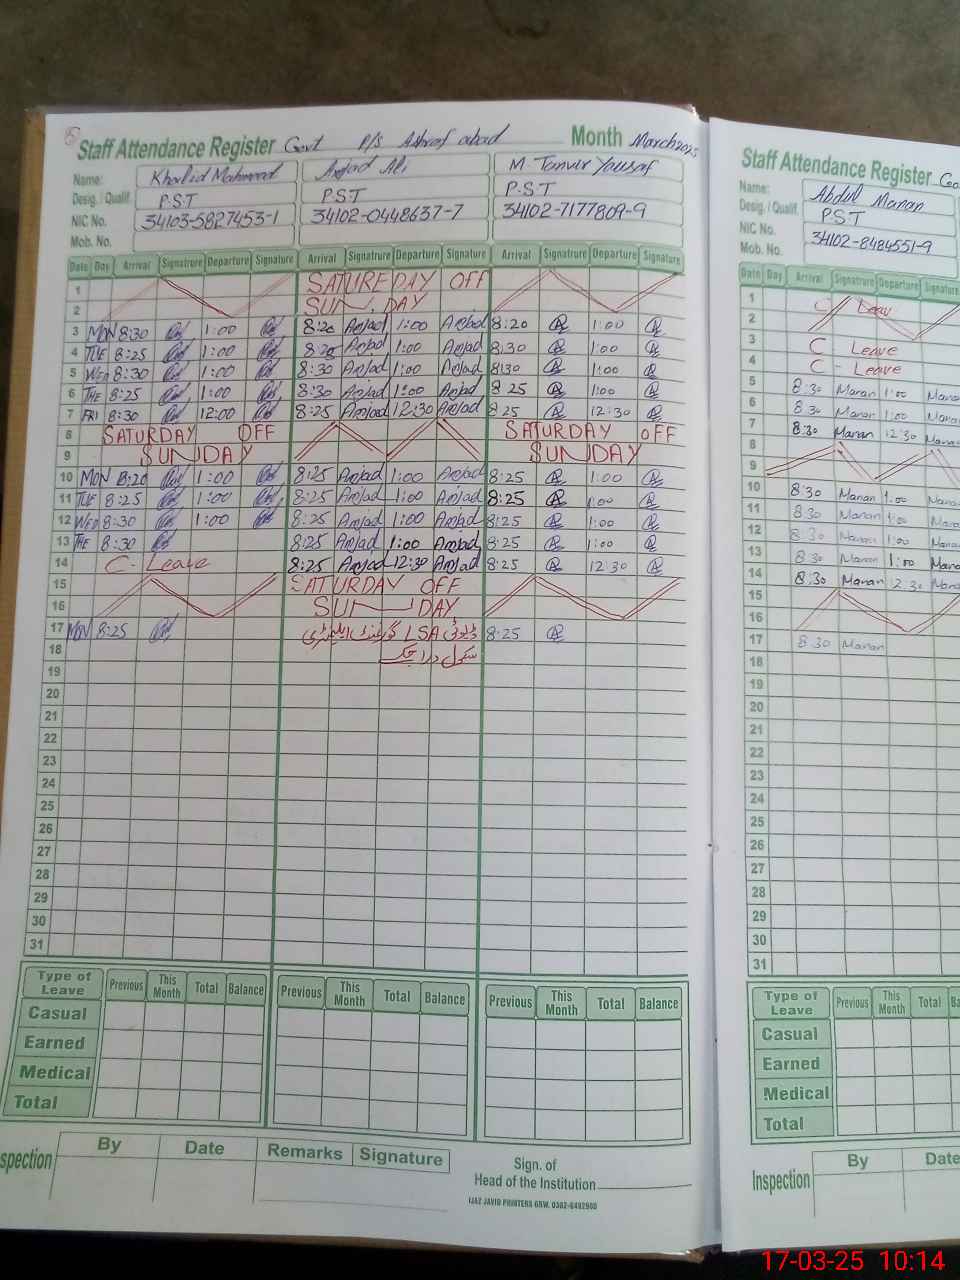 Staff Attendance Register Govt P/S Ashraf abad Month March 2025
Name: Khalid Mahmood Amjad Ali M. Tanvir Yousaf
Desig. / Qualif. P.S.T P.S.T P.S.T
NIC No. 34103-5827453-1 34102-0448637-7 34102-7177809-9
Mob. No.
Date Day Arrival Signatrure Departure Signature Arrival Signatrure Departure Signature Arrival Signatrure Departure Signature
1 SATUREDAY OFF
2 SUN. DAY
3 MON 8:30 1:00 8:20 Amjad 1:00 Amjad 8:20 1:00
4 TUE 8:25 1:00 8:25 Amjad 1:00 Amjad 8:30 1:00
5 WED 8:30 1:00 8:30 Amjad 1:00 Amjad 8:30 1:00
6 THE 8:25 1:00 8:30 Amjad 1:00 Amjad 8 25 1:00
7 FRI 8:30 12:00 8:25 Amjad 12:30 Amjad 8 25 12:30
8 SATURDAY OFF SATURDAY OFF
9 SUNDAY SUNDAY
10 MON 8:20 1:00 8:25 Amjad 1:00 Amjad 8:25 1:00
11 TUE 8:25 1:00 8:25 Amjad 1:00 Amjad 8:25 1:00
12 WED 8:30 1:00 8:25 Amjad 1:00 Amjad 8:25 1:00
13 THE 8:30 8:25 Amjad 1:00 Amjad 8:25 1:00
14 C- Leave 8:25 Amjad 12:30 Amjad 8:25 12:30
15 SATURDAY OFF
16 SUN DAY
17 MON 8:25 ڈیوٹی LSA گورنمنٹ ایلیمنٹری 8:25
18 سکول
19
20
21
22
23
24
25
26
27
28
29
30
31
Type of Leave Previous This Month Total Balance Previous This Month Total Balance Previous This Month Total Balance
Casual
Earned
Medical
Total
spection By Date Remarks Signature
Sign. of
Head of the Institution
IJAZ JAVID PRINTERS GRW. 0302-6492900
Staff Attendance Register Go
Name: Abdul Manan
Desig. / Qualif. P.S.T
NIC No. 34102-8484551-9
Mob. No.
Date Day Arrival Signatrure Departure Signature
1
2 C Leav
3
4 C Leave
C - Leave
5 8:30 Manan 1:00 Mana
6 8:30 Manan 1:00 Mana
7 8:30 Manan 12:30 Mana
8
9
10 8:30 Manan 1:00 Manan
11 8:30 Manan 1:00 Mana
12 8:30 Manan 1:00 Mana
13 8:30 Manan 1:00 Mana
14 8:30 Manan 12:30 Mana
15
16
17 8:30 Manan
18
19
20
21
22
23
24
25
26
27
28
29
30
31
Type of Leave Previous This Month Total Ba
Casual
Earned
Medical
Total
Inspection By Date
17-03-25 10:14